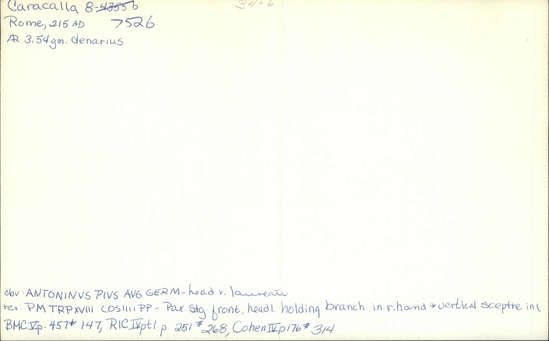 Caracalla 8-43556
34-6
Rome, 215 AD 7526
AR 3.54gm. denarius
obv. ANTONINVS PIVS AVG GERM - head r. laureate
rev. PM TRPXVIII COSIIII PP - Pax stg front, head l holding branch in r. hand + vertical sceptre in l
BMC V p. 457 # 147, RIC IV pt 1 p. 251 # 268, Cohen IV p 176 # 314